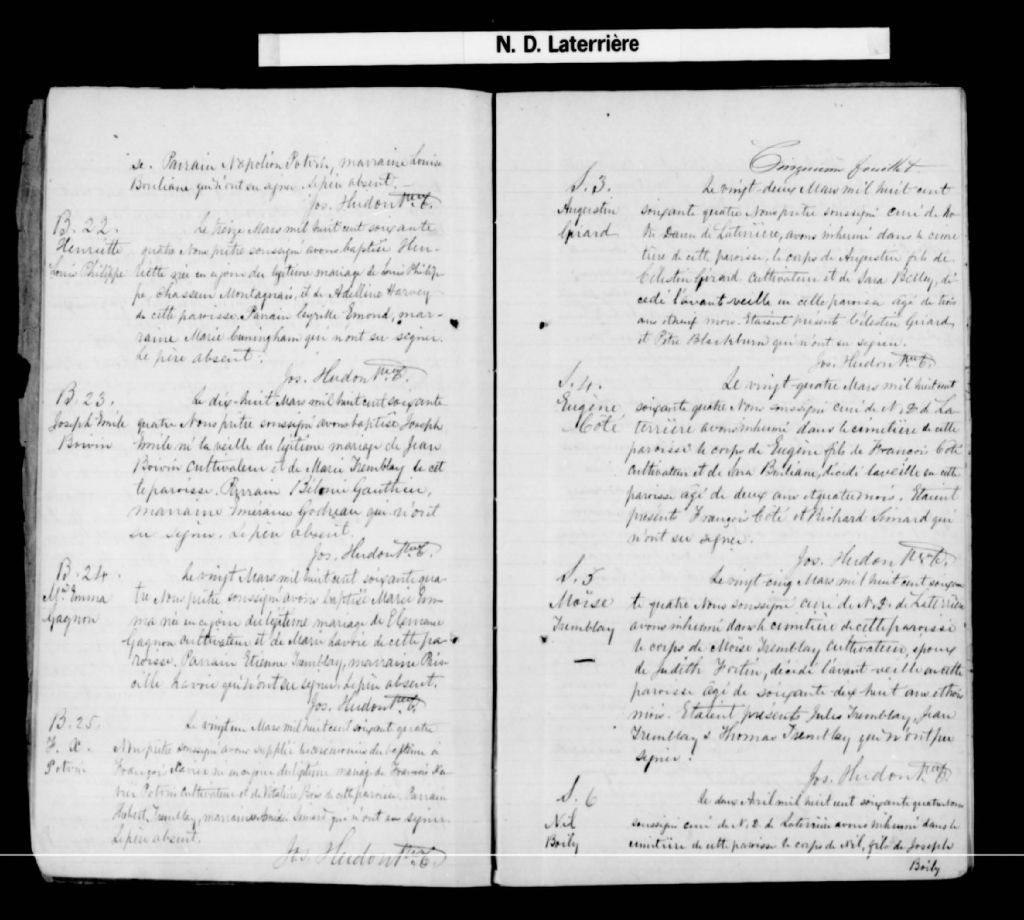 N. D. Laterrière
se. Parrain Napoléon Potvin, marraine Louise
Bouliane qui n'ont su signer. Le père absent.
Jos. Hudon Ptre C.
B. 22.
Henriette
Louis Philippe
Le seize Mars mil huit cent soixante
quatre Nous prêtre soussigné avons baptisé Hen-
riette née en ce jour du légitime mariage de Louis Philip-
pe, Chasseur Montagnais, et de Adelline Harvey
de cette paroisse. Parrain Cyrille Emond, mar-
raine Marie Cuningham qui n'ont su signer.
Le père absent.
Jos. Hudon Ptre C.
B. 23.
Joseph Emile
Boivin
Le dix-huit Mars mil huit cent soixante
quatre Nous prêtre soussigné avons baptisé Joseph
Emile né la veille du légitime mariage de Jean
Boivin cultivateur et de Marie Tremblay de cet
te paroisse. Parrain Bélonie Gauthier,
marraine Godreau qui n'ont
su signer. Le père absent.
Jos. Hudon Ptre C.
B. 24.
Mie Emma
Gagnon
Le vingt Mars mil huit cent soixante qua-
tre Nous prêtre soussigné avons baptisé Marie Em-
ma née en ce jour du légitime mariage de Clémence
Gagnon cultivateur et de Marie Lavoie de cette pa-
roisse. Parrain Etienne Tremblay, marraine Pris-
cille Lavoie qui n'ont su signer. Le père absent.
Jos. Hudon Ptre C.
B. 25.
F. X.
Potvin
Le vingt un Mars mil huit cent soixante quatre
Nous prêtre soussigné avons supplée les cérémonies du baptême à
François Xavier né en ce jour du légitime mariage de François Xa-
vier Potvin cultivateur et de Vitaline Bois de cette paroisse. Parrain
Hubert Tremblay, marraine Simard qui n'ont su signer
Le père absent.
Jos. Hudon Ptre C.
Cinquième feuillet
S. 3.
Augustin
Girard
Le vingt-deux Mars mil huit cent
soixante quatre Nous prêtre soussigné curé de No-
tre Dame de Laterrière, avons inhumé dans le cime
tière de cette paroisse, le corps de Augustin fils de
Célestin Girard cultivateur et de Sara Bolley, dé-
cédé l'avant veille en cette paroisse âgé de trois
ans et deux mois. Etaient présents Célestin Girard,
et Pitre Blackburn qui n'ont su signer.
Jos. Hudon Ptre C.
S. 4.
Eugène
Coté
Le vingt-quatre Mars mil huit cent
soixante quatre Nous soussigné curé de N. D. d La-
terrière avons inhumé dans le cimetière de cette
paroisse le corps de Eugène fils de François Coté
cultivateur et de Sara Bouliane, décédé la veille en cette
paroisse âgé de deux ans et quatre mois. Etaient
présents François Coté et Richard Simard qui
n'ont su signer.
Jos. Hudon Ptre C.
S. 5
Moïse
Tremblay
Le vingt-cinq Mars mil huit cent soixan
te quatre Nous soussigné curé de N. D. de Laterrière
avons inhumé dans le cimetière de cette paroisse
le corps de Moïse Tremblay cultivateur, époux
de Judith Fortin, décédé l'avant-veille en cette
paroisse âgé de soixante-dix huit ans et trois
mois. Etaient présents Jules Tremblay, Jean
Tremblay & Thomas Tremblay qui n'ont pu
signer.
Jos. Hudon Ptre C.
S. 6
Nil
Boily
Le deux Avril mil huit cent soixante quatre Nous
soussigné curé de N. D. de Laterrière avons inhumé dans le
cimetière de cette paroisse le corps de Nil, fils de Joseph
Boily